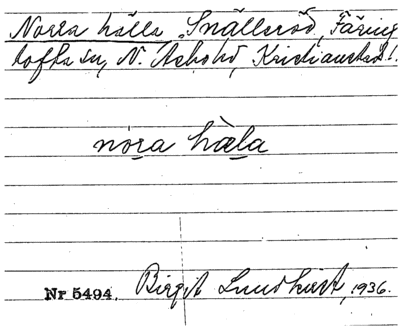 Norra hälla, Snälleröd, Färing
tofta sn, N. Åsbo hd, Kristianstads l.
nora hæla
Nr 5494. Birgit Lundkvist, 1936.